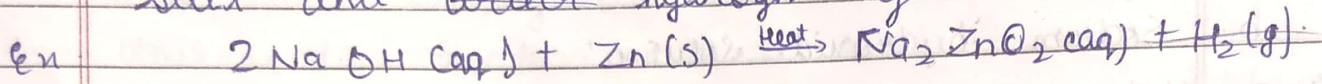 Ex 2 NaOH (aq) + Zn (s) Heat→ Na₂ZnO₂ (aq) + H₂ (g).